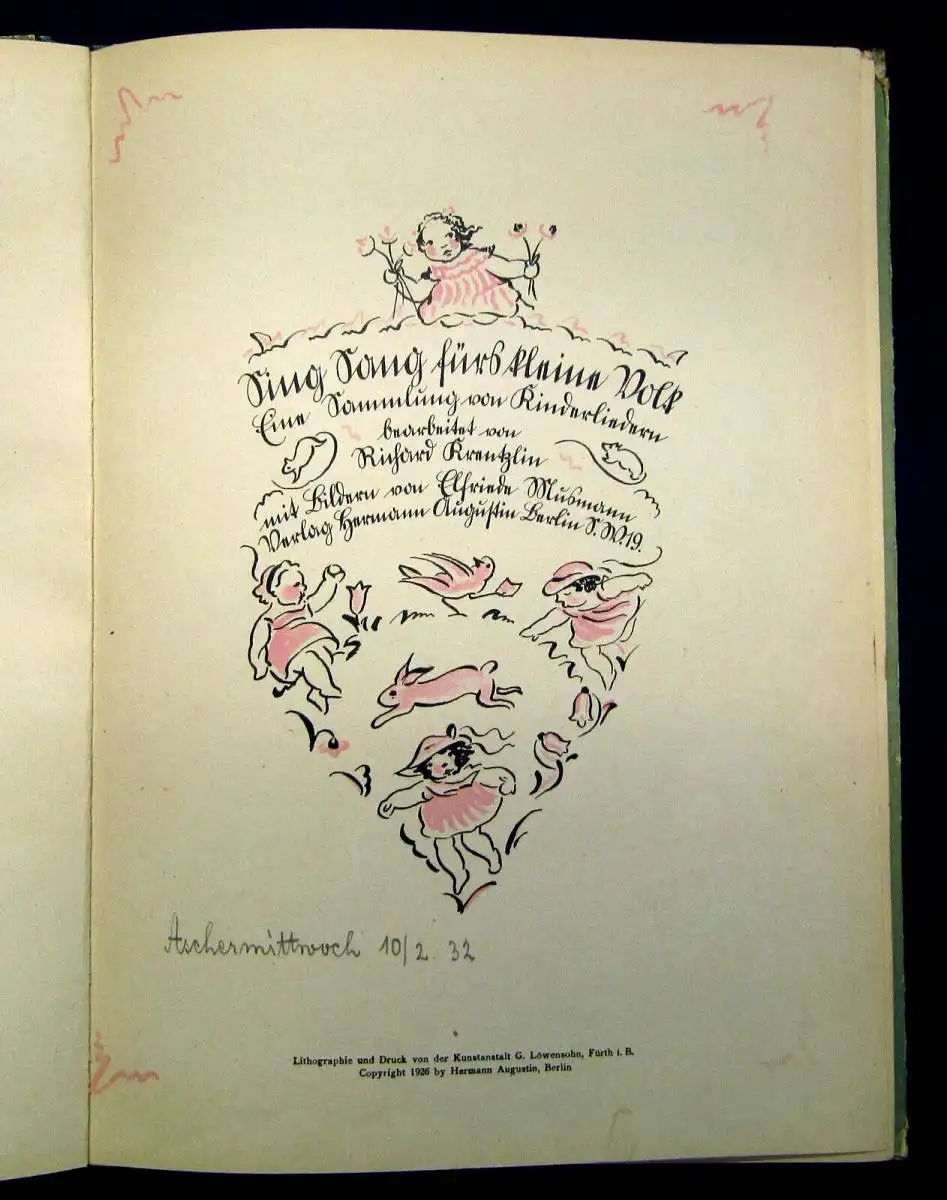 Sing Sang fürs kleine Volk
Eine Sammlung von Kinderliedern
bearbeitet von
Richard Krentzlin
mit Bildern von Elfriede Musmann
Verlag Hermann Augustin Berlin S.W.19.
Aschermittwoch 10/2. 32
Lithographie und Druck von der Kunstanstalt G. Löwensohn, Fürth i. B.
Copyright 1926 by Hermann Augustin, Berlin